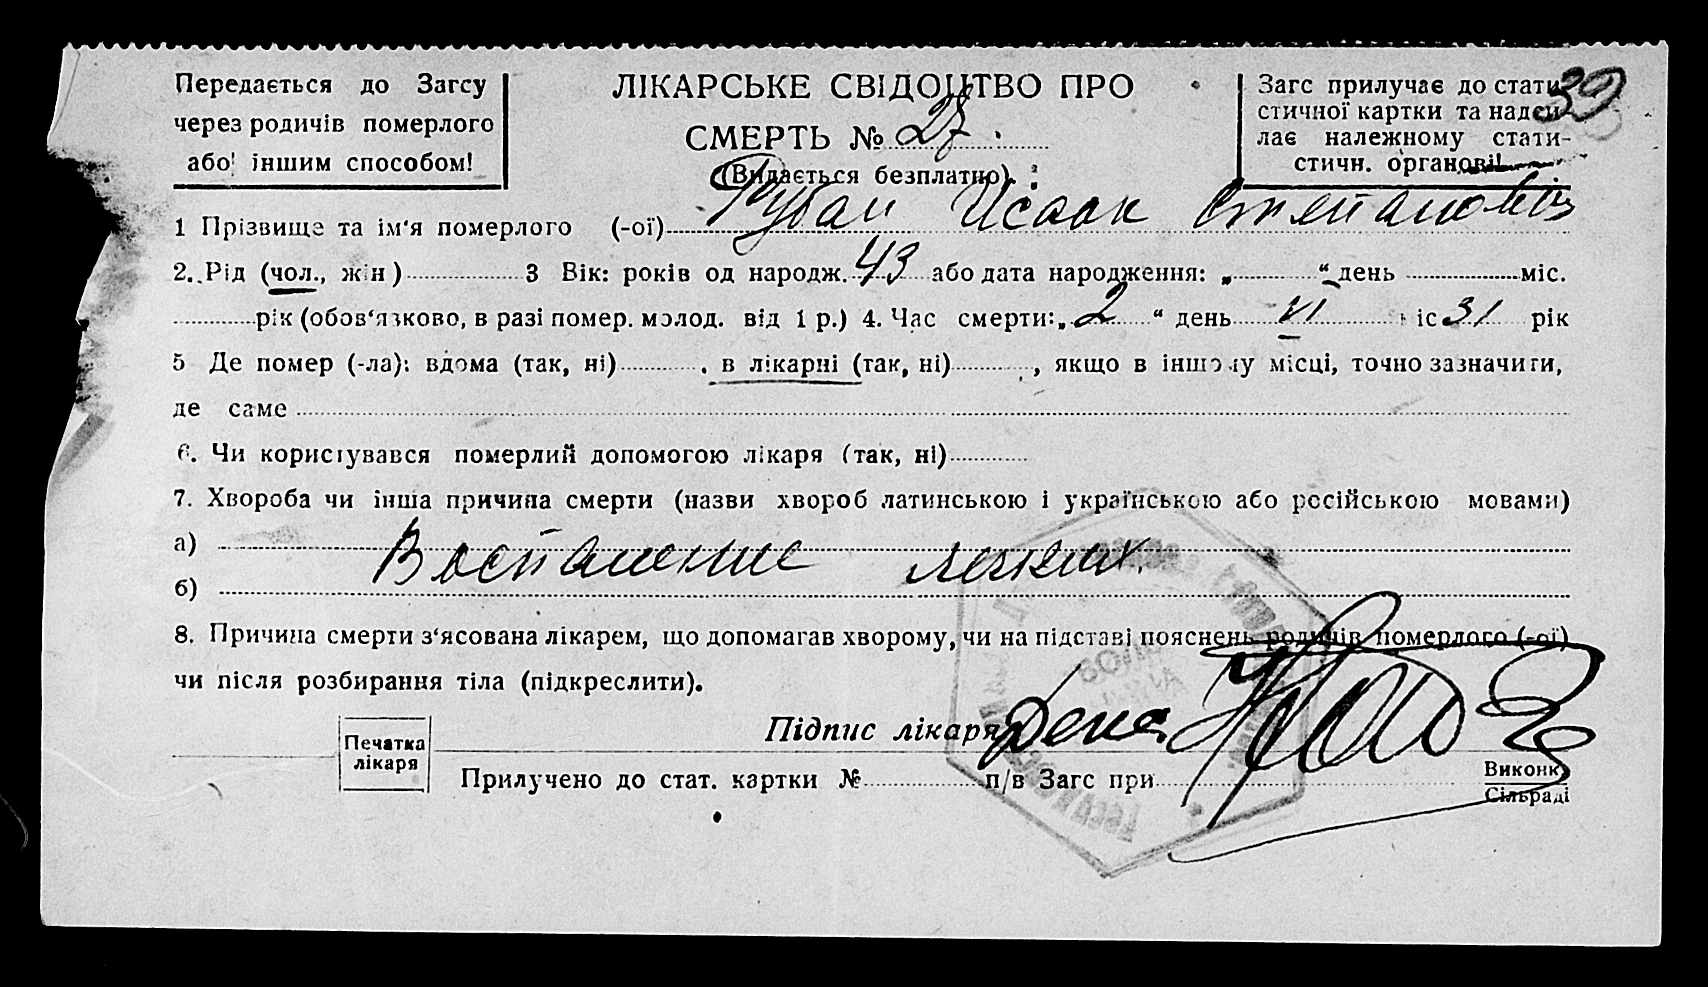 39
Передається до Загсу
через родичів померлого
або іншим способом!
ЛІКАРСЬКЕ СВІДОЦТВО ПРО
СМЕРТЬ № 27
(Видається безплатно).
Загс прилучає до стати-
стичної картки та надси-
лає належному стати-
стичн. органові!
1 Прізвище та ім'я померлого (-ої) Рубан Исаак Степанович
2. Рід (чол., жін) 3 Вік: років од народж. 43 або дата народження: „ “ день міс.
рік (обов'язково, в разі помер. молод. від 1 р.) 4. Час смерти: „ 2 “ день VI міс 31 рік
5 Де помер (-ла): вдома (так, ні) , в лікарні (так, ні) , якщо в іншому місці, точно зазначити,
де саме
6. Чи користувався померлий допомогою лікаря (так, ні)
7. Хвороба чи інша причина смерти (назви хвороб латинською і українською або російською мовами)
а) Воспаление легких.
б)
8. Причина смерти з'ясована лікарем, що допомагав хворому, чи на підставі пояснень родичів померлого (-ої)
чи після розбирання тіла (підкреслити).
Підпис лікаря
Печатка
лікаря
Прилучено до стат. картки № п/в Загс при Виконк.
Сільраді